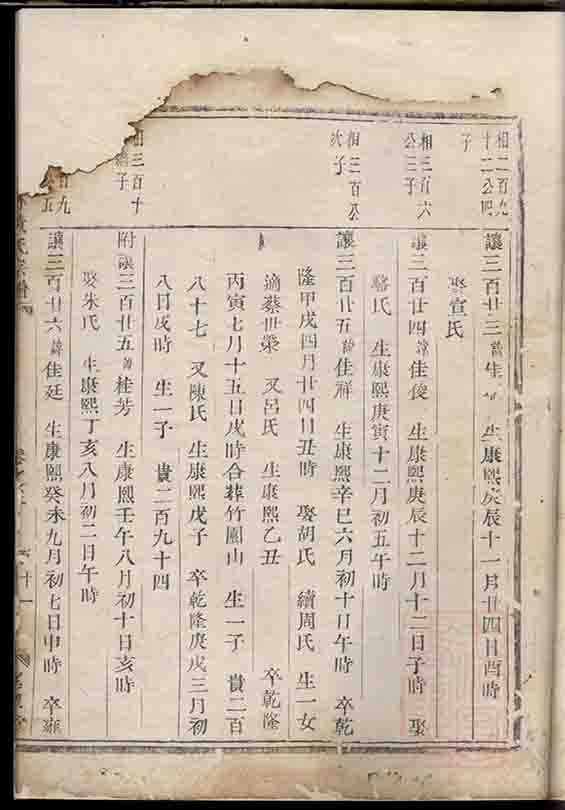 相二百九
十二公四
子
讓三百廿三 諱佳 生康熙庚辰十一月廿四日酉時
娶宣氏
相二百六
公三子
讓三百廿四 諱佳俊 生康熙庚辰十二月十二日子時 娶
駱氏 生康熙庚寅十二月初五午時
相三百公
次子
讓三百廿五 諱佳祥 生康熙辛巳六月初十日午時 卒乾
隆甲戌四月廿四日丑時 娶胡氏 續周氏 生一女
適蔡世榮 又呂氏 生康熙乙丑 卒乾隆
丙寅七月十五日戌時合葬竹園山 生一子 貴二百
八十七 又陳氏 生康熙戊子 卒乾隆庚戌三月初
八日戌時 生一子 貴二百九十四
相三百十
子
附讓三百廿五 諱桂芳 生康熙壬午八月初十日亥時
娶朱氏 生康熙丁亥八月初二日午時
百九
公五
讓三百廿六 諱佳廷 生康熙癸未九月初七日申時 卒雍
氏宗譜